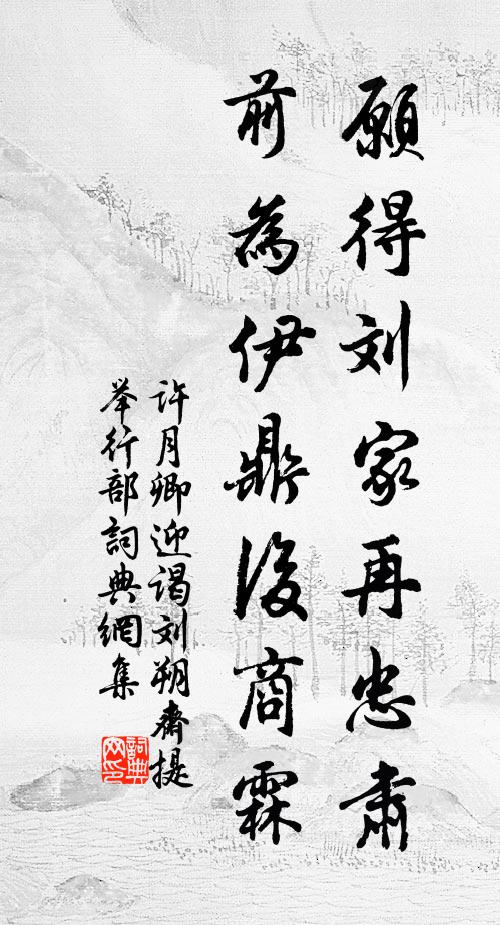 願得刘家再忠肅
前為伊鼎後商霖
许月卿迎谒刘朔齋提
举行部詞典網集
詞典网印